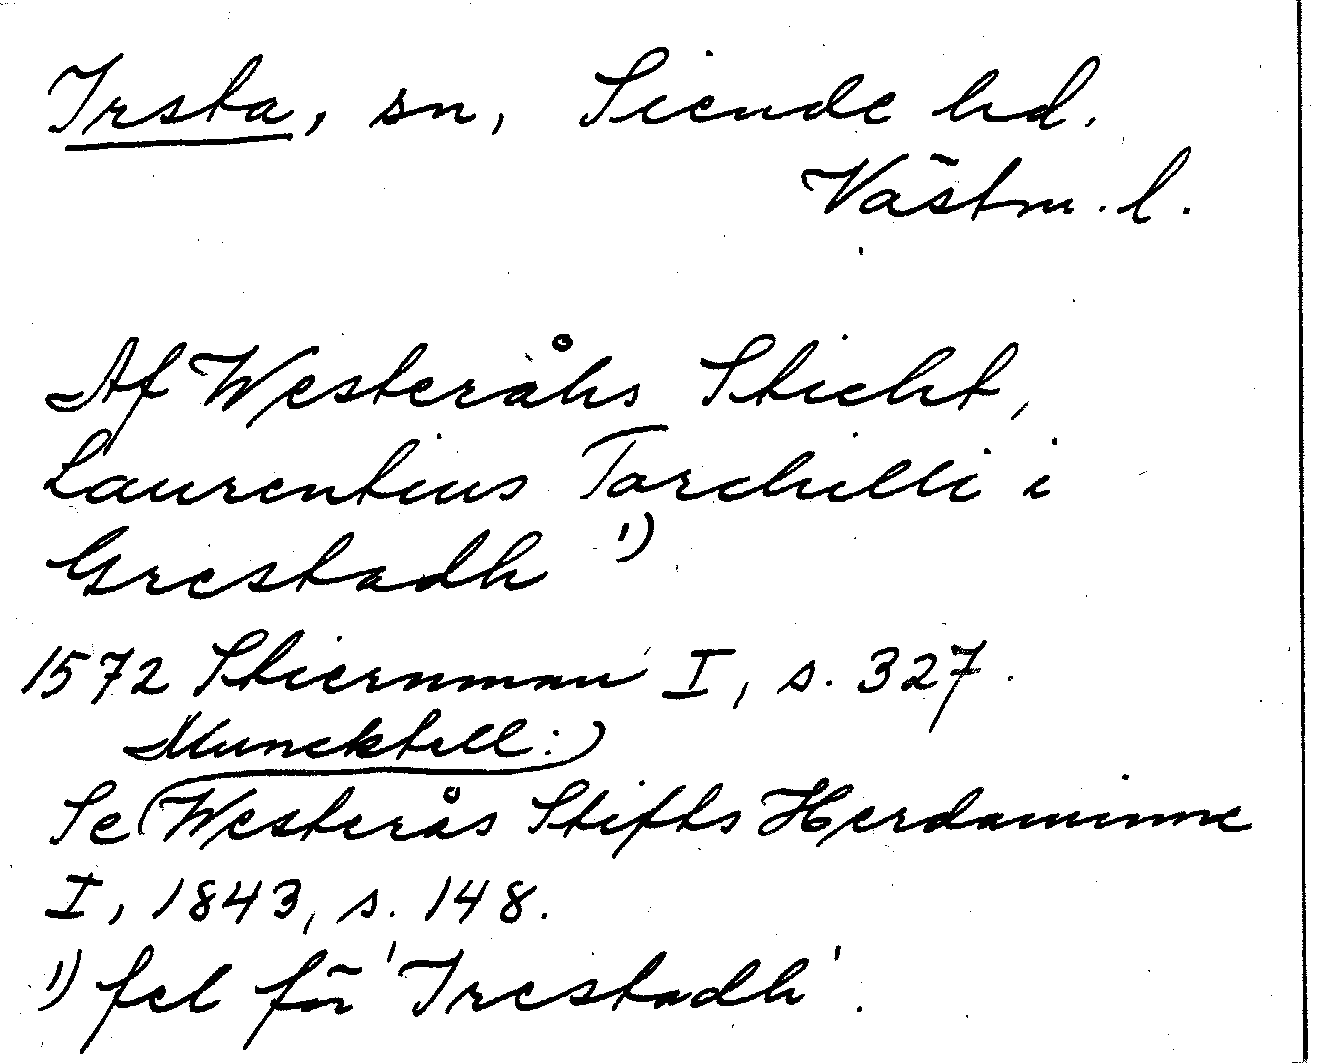 Irsta, sn, Siende hd.
Västm. l.
Af Westeråhs Sticht,
Laurentius Torchilli i
Grestadh ¹)
1572 Stiernman I, s. 327.
Muncktell:
Se Westerås Stifts Herdaminne
I, 1843, s. 148.
¹) fel för 'Irestadh'.